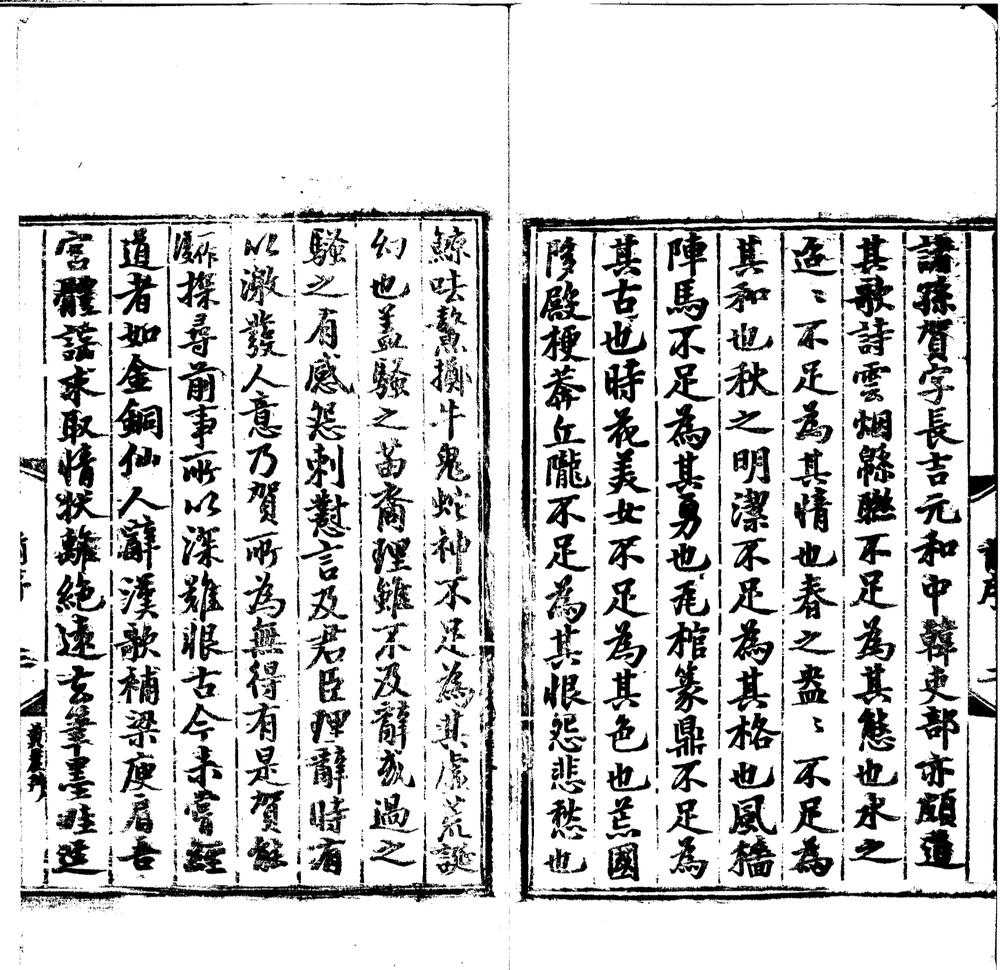 諸孫賀字長吉元和中韓吏部亦頗道
其歌詩雲烟緜聮不足為其態也水之
迢〻不足為其情也春之盎〻不足為
其和也秋之明潔不足為其格也風檣
陣馬不足為其勇也瓦棺篆鼎不足為
其古也時花美女不足為其色也荒國
陊殿梗莽丘隴不足為其恨怨悲愁也
鯨呿鰲擲牛鬼蛇神不足為其虛荒誕
幻也盖騷之苗裔理雖不及辭或過之
騷之有感怨刺懟言及君臣理辭時有
以激發人意乃賀所為無得有是賀能
一作復探尋前事所以深難恨古今未嘗經
道者如金銅仙人辭漢歌補梁庾肩吾
宮體謠求取情狀離絕遠去筆墨畦逕